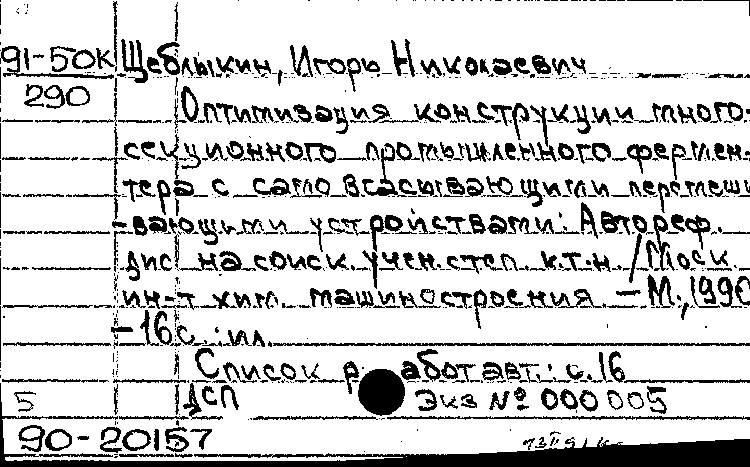 91-50к Щеблыкин, Игорь Николаевич
290 Оптимизация конструкции много-
секционного промышленного фермен-
тера с само всасывающими перемеши
-вающими устройствами: Автореф.
дис на соиск. учен. степ. к.т.н. / Моск.
ин-т хим. машиностроения. – М., 1990
– 16 с. : ил.
Список работ авт.: с. 16
5 ДСП Экз № 000005
90-20157